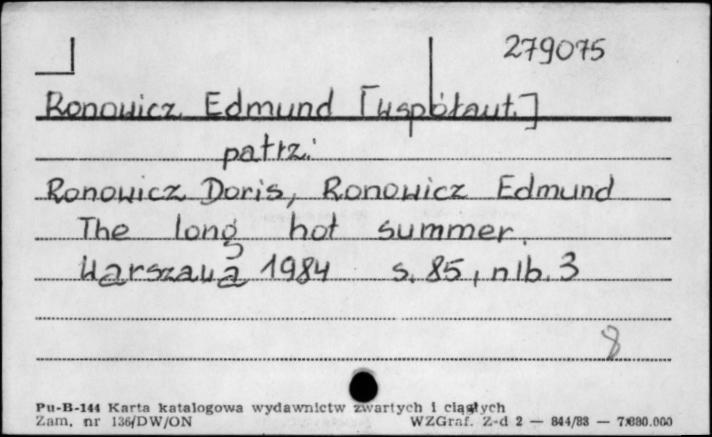 279075
Ronowicz Edmund [współaut.]
patrz:
Ronowicz Doris, Ronowicz Edmund
The long hot summer.
Warszawa 1984 s. 85, nlb. 3
8
Pu-B-144 Karta katalogowa wydawnictw zwartych i ciągłych
Zam. nr 136/DW/ON WZGraf. Z-d 2 — 844/83 — 7.680.000